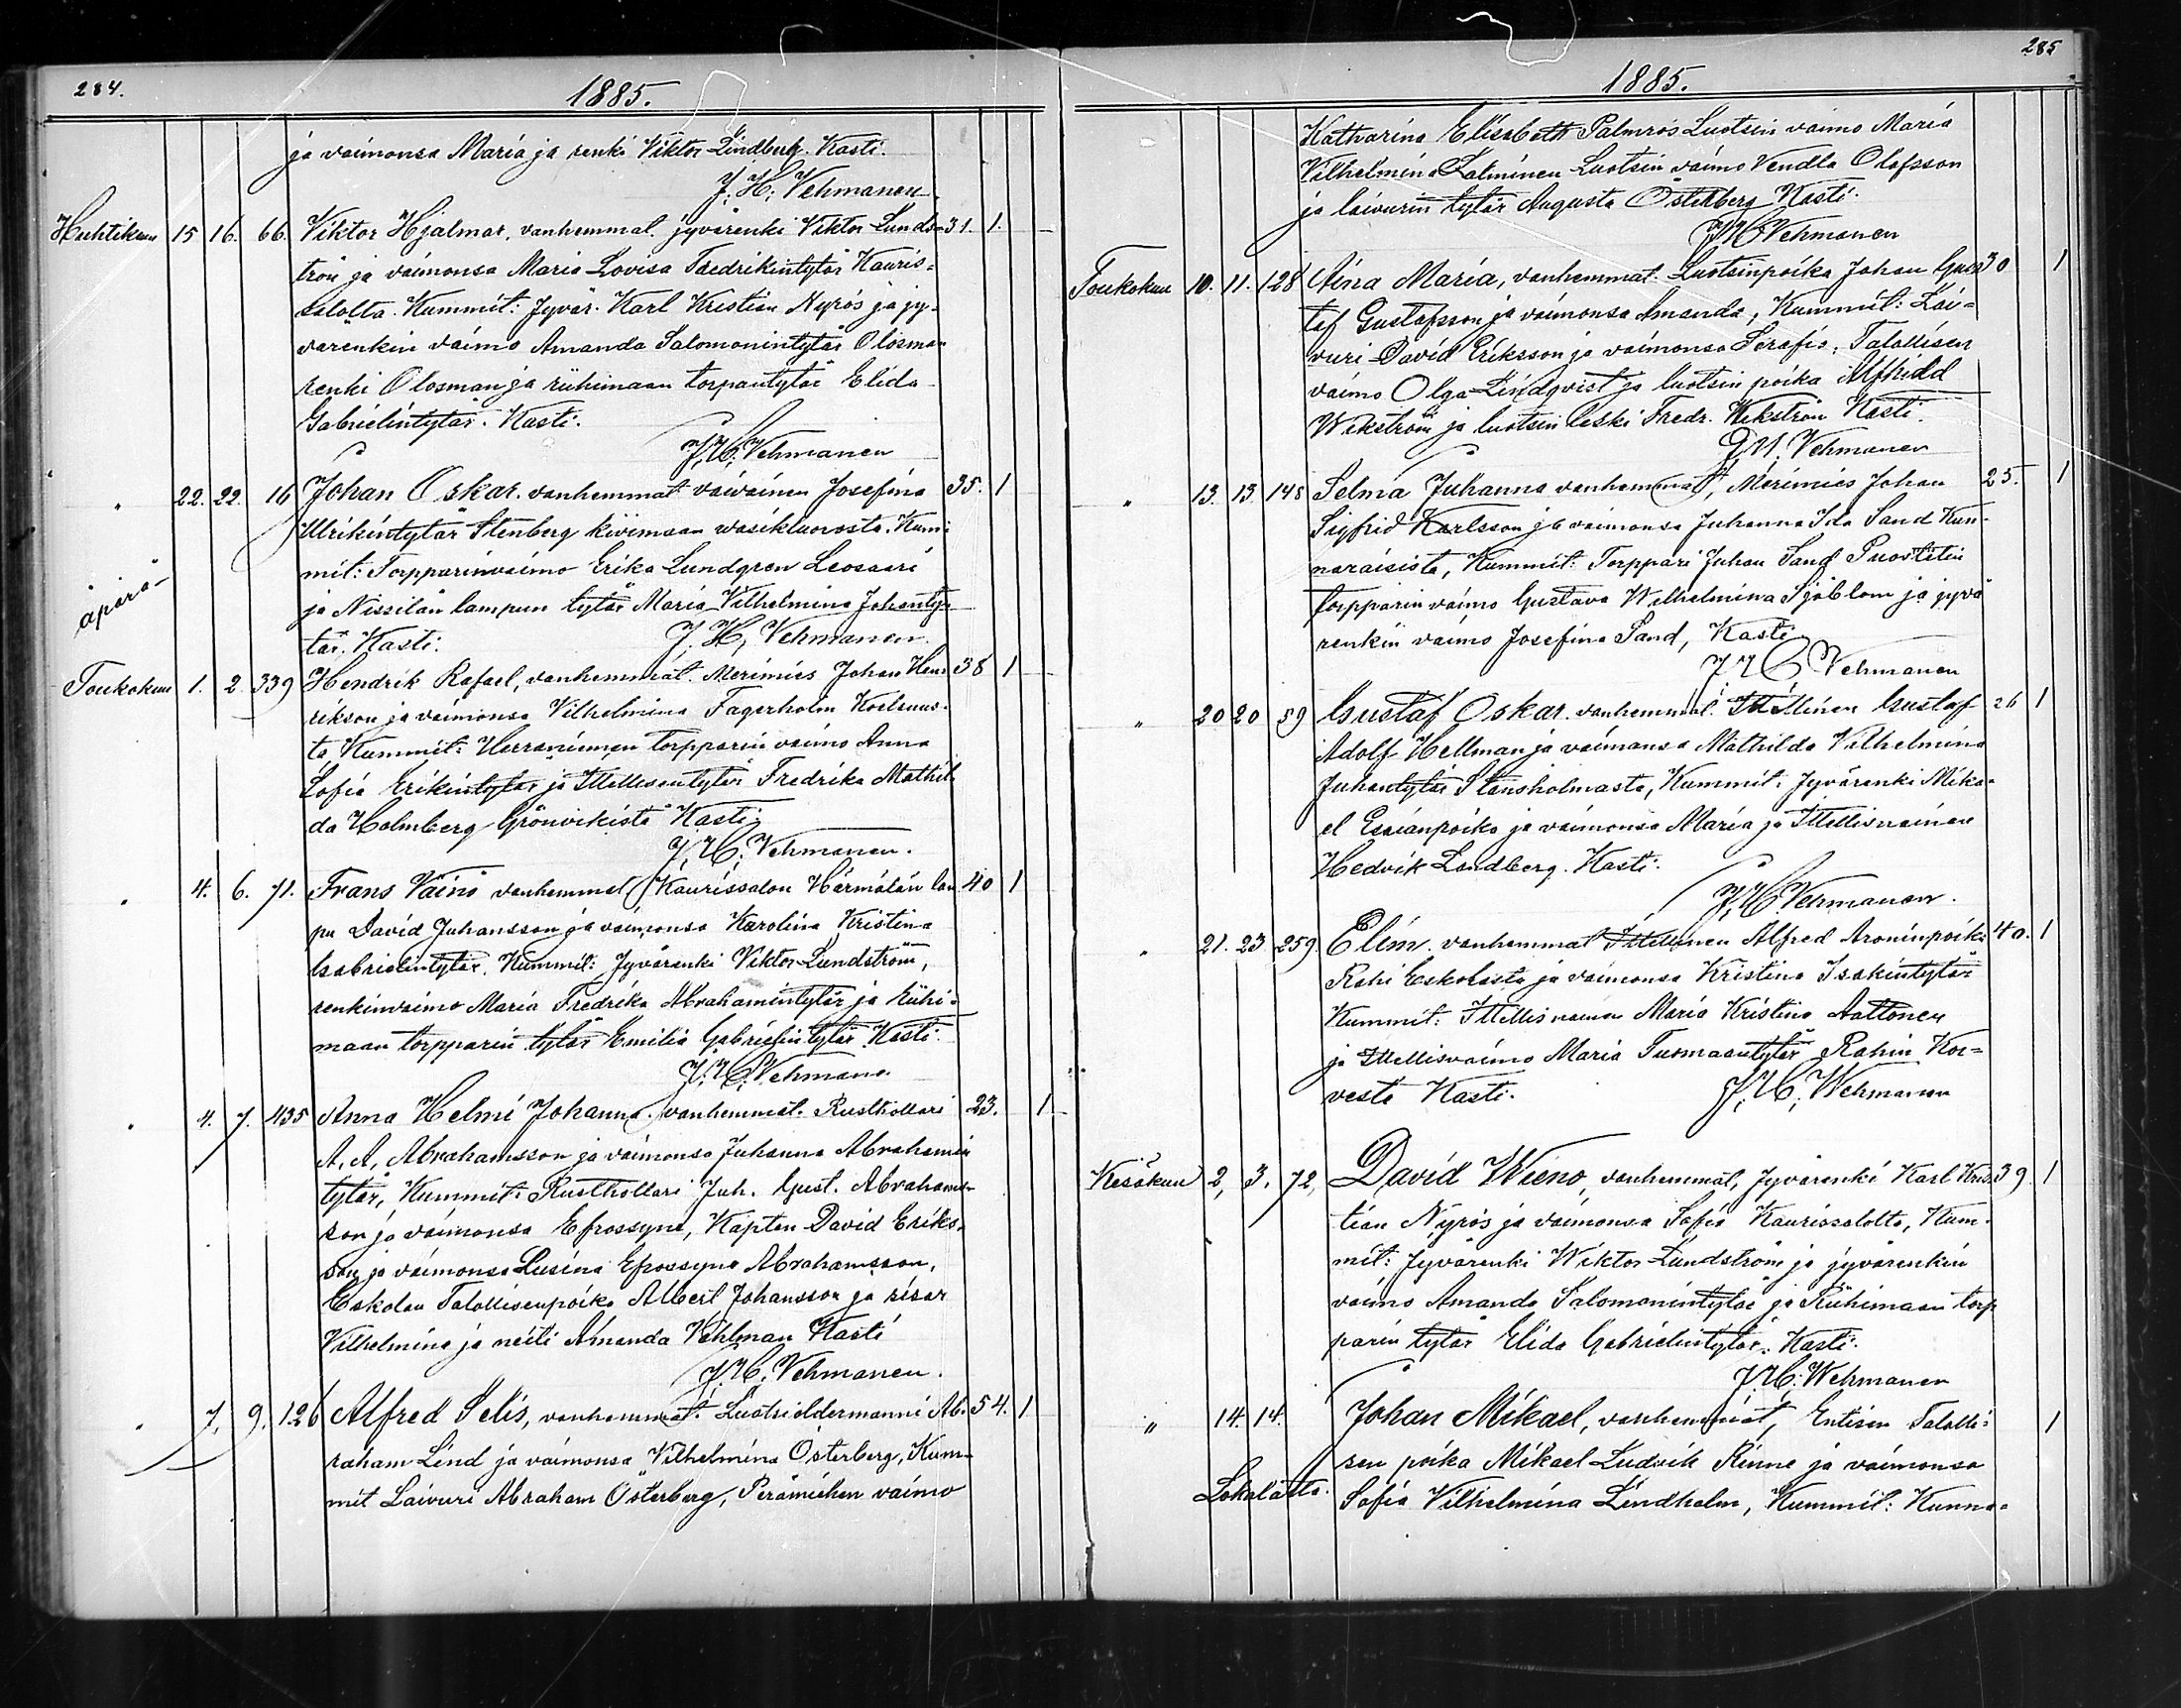 284.
1885.
ja vaimonsa Maria ja renki Viktor Lindberg. Kasti.
J. H. Vehmanen
Huhtikuu 15 16. 66. Viktor Hjalmar. vanhemmat. jyvärenki Viktor Lunds- 31. 1.
tröm ja vaimonsa Maria Lovisa Fredrikintytär Kauris-
salolta. Kummit: Jyvär. Karl Kristian Nyrös ja jy-
värenkin vaimo Amanda Salomonintytär Olosman
renki Olosman ja riihimaan torpantytär Elida
Gabrielintytär. Kasti.
J. H. Vehmanen
" 22. 22. 16 Johan Oskar. vanhemmat vaivainen Josefina 35. 1
äpärä
Ulrikintytär Stenberg kivimaan wasikluorosta. Kum-
mit: Torpparinvaimo Erika Lundgren Leosaari
ja Nissilän lampun tytär Maria Vilhelmina Johanty-
tär. Kasti. J. H. Vehmanen.
Toukokuu 1. 2. 339 Hendrik Rafael, vanhemmat. Merimies Johan Hen 38 1
rikson ja vaimonsa Vilhelmina Fagerholm
ta Kummit: torpparin vaimo Anna
Sofia Erikintytär ja Itellisentytär Fredrika Mathil
da Holmberg Grönvikistä Kasti
J. H. Vehmanen.
" 4. 6. 71. Frans Väinö vanhemmat Kaurissalon Härmälän lam 40 1
pu David Juhansson ja vaimonsa Karolina Kristina
Gabrielintytär. Kummit: Jyvärenki Viktor Lundström,
renkinvaimo Maria Fredrika Abrahamintytär ja Riihi-
maan torpparin tytär Emilia Gabrielintytär Kasti.
J. H. Vehmane
" 4. 7. 435 Anna Helmi Johanna. vanhemmat. Rusthollari 23. 1
A. A. Abrahamsson ja vaimonsa Juhanna Abrahamin
tytär, Kummit: Rusthollari Juh. Gust. Abrahams-
son ja vaimonsa Efrossyne, Kapten David Eriks-
son ja vaimonsa Lusina Efrossyne Abrahamsson,
Eskolan Talollisenpoika Albert Johansson ja sisar
Vilhelmina ja neiti Amanda Vehlman Kasti
J. H. Vehmanen.
" 7. 9. 126 Alfred Selis, vanhemmat. Luotsioldermanni Ab- 54. 1
raham Lind ja vaimonsa Vilhelmina Österberg, Kum-
mit Laivuri Abraham Österberg, Perämiehen vaimo
285
1885.
Katharina Elisabeth Palmros Luotsin vaimo Maria
Vilhelmina Salminen Luotsin vaimo Vendla Olofsson
ja laivurin tytär Augusta Österberg Kasti.
J H Vehmanen
Toukokuu 10. 11. 128 Aina Maria, vanhemmat. Luotsinpoika Johan Gus 30 1
taf Gustafsson ja vaimonsa Amanda, Kummit: Lai-
vuri David Eriksson ja vaimonsa Serafis, Talollisen
vaimo Olga Lindqvist ja luotsin poika Alfridd
Wikström ja luotsin leski Fredr. Wikström Kasti.
J. H. Vehmanen
" 13. 13. 148 Selma Juhanna vanhemmat, Merimies Johan 25. 1
Sigfrid Karlsson ja vaimonsa Juhanna Ida Sand Kun-
naraisista, Kummit: Torppari Juhan Sand
torpparin vaimo Gustava Wilhelmina Sjöblom ja jyvä
renkin vaimo Josefina Sand, Kasti
J H Vehmanen
" 20 20 59 Gustaf Oskar. vanhemmat. Itellinen Gustaf 26 1
Adolf Hellman ja vaimonsa Mathilda Vilhelmina
Juhantytär Stansholmasta, Kummit: Jyvärenki Mika-
el Esaianpoika ja vaimonsa Maria ja Itellisnainen
Hedvik Landberg. Kasti.
J. H. Vehmanen.
" 21. 23. 259. Elim. vanhemmat Itellinen Alfred Aroninpoika 40. 1
Rahi Eskolasta ja vaimonsa Kristina Isakintytär
Kummit: Itellis vaimo Maria Kristina Aaltonen
ja Itellisvaimo Maria Tuomaantytär Rahin Kor-
vesta Kasti. J. H. Wehmanen
Kesäkuu 2, 3. 72, David Wieno, vanhemmat, Jyvärenki Karl Kris 39. 1
tian Nyrös ja vaimonsa Sofia Kaurissalolta, Kum-
mit: Jyvärenki Wiktor Lundström ja jyvärenkin
vaimo Amanda Salomonintytär ja Riihimaan torp
parin tytär Elida Gabrielintytär. Kasti.
J. H. Wehmanen
" 14. 14. Johan Mikael, vanhemmat, Entisen Talolli- 1
sen poika Mikael Ludvik Rinne ja vaimonsa
Lokalatta. Sofia Vilhelmina Lindholm, Kummit: Kunna-